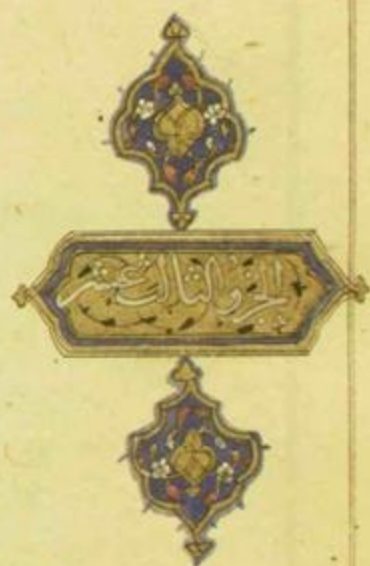 الجزو الثالث عشر